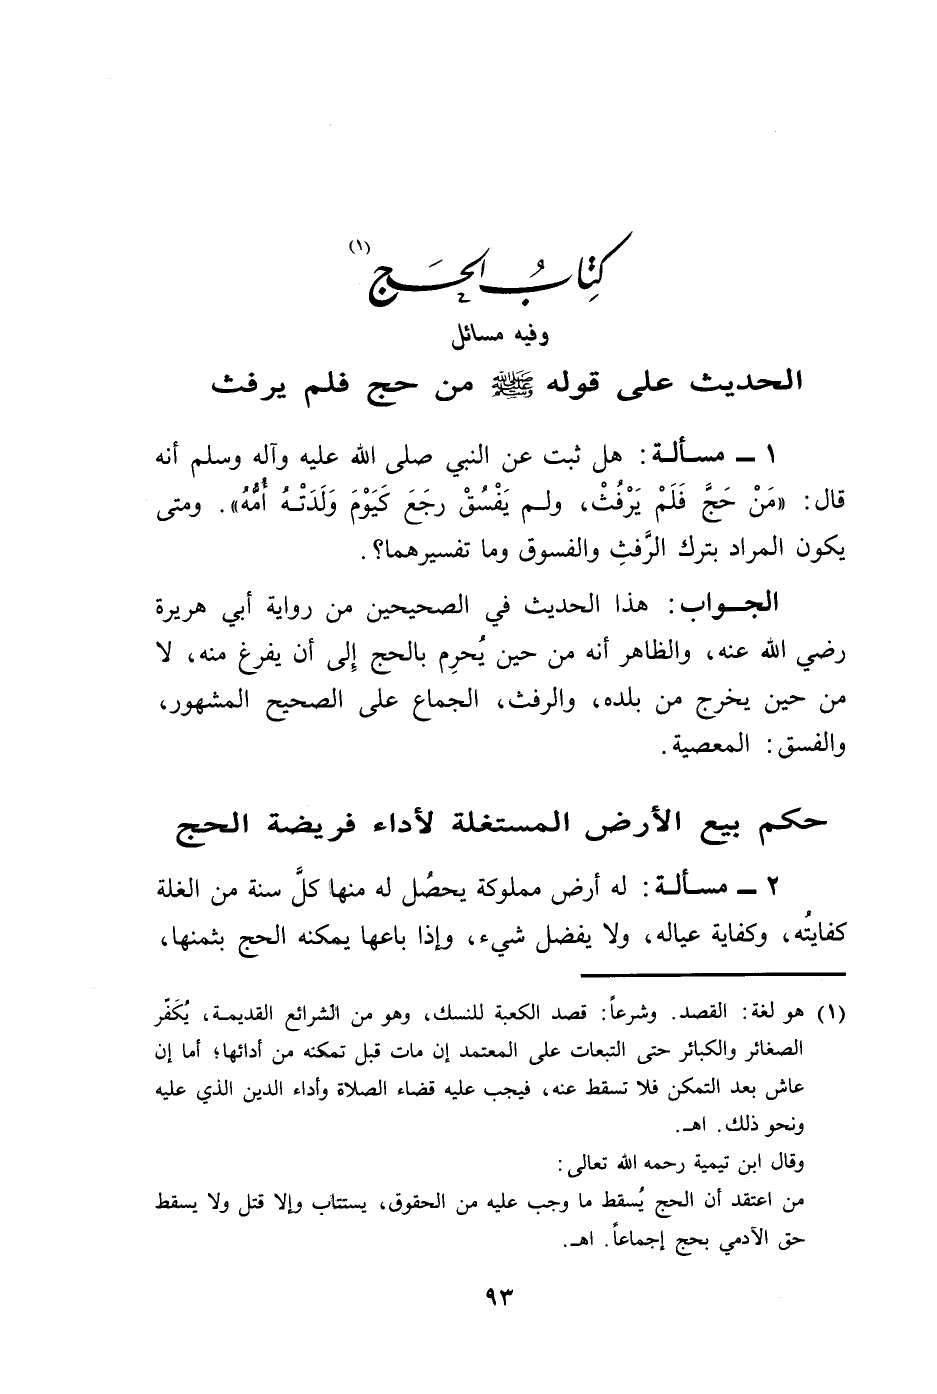 كِتَابُ الحَجّ (١)
وفيه مسائل
الحديث على قوله ﷺ من حج فلم يرفث
١ ـ مسـألـة : هل ثبت عن النبي صلى الله عليه وآله وسلم أنه
قال : «مَنْ حَجَّ فَلَمْ يَرْفُثْ، ولـم يَفْسُقْ رجَعَ كَيَوْمَ وَلَدَتْـهُ أُمُّهُ» . ومتى
يكون المراد بترك الرَّفثِ والفسوق وما تفسيرهما؟ .
الجـواب : هذا الحديث في الصحيحين من رواية أبي هريرة
رضي الله عنه، والظاهر أنه من حين يُحرِم بالحج إِلى أن يفرغ منه، لا
من حين يخرج من بلده، والرفث، الجماع على الصحيح المشهور،
والفسق : المعصية .
حكم بيع الأرض المستغلة لأداء فريضة الحج
٢ ـ مسـألـة : له أرض مملوكة يحصُل له منها كلَّ سنة من الغلة
كفايتُه، وكفاية عياله، ولا يفضل شيء، وإذا باعها يمكنه الحج بثمنها،
(١) هو لغة : القصد . وشرعاً : قصد الكعبة للنسك، وهو من الشرائع القديمـة، يُكَفّر
الصغائر والكبائر حتى التبعات على المعتمد إن مات قبل تمكنه من أدائها؛ أما إن
عاش بعد التمكن فلا تسقط عنه، فيجب عليه قضاء الصلاة وأداء الدين الذي عليه
ونحو ذلك . اهـ .
وقال ابن تيمية رحمه الله تعالى :
من اعتقد أن الحج يُسقط ما وجب عليه من الحقوق، يستتاب وإلا قتل ولا يسقط
حق الآدمي بحج إجماعاً . اهـ .
٩٣